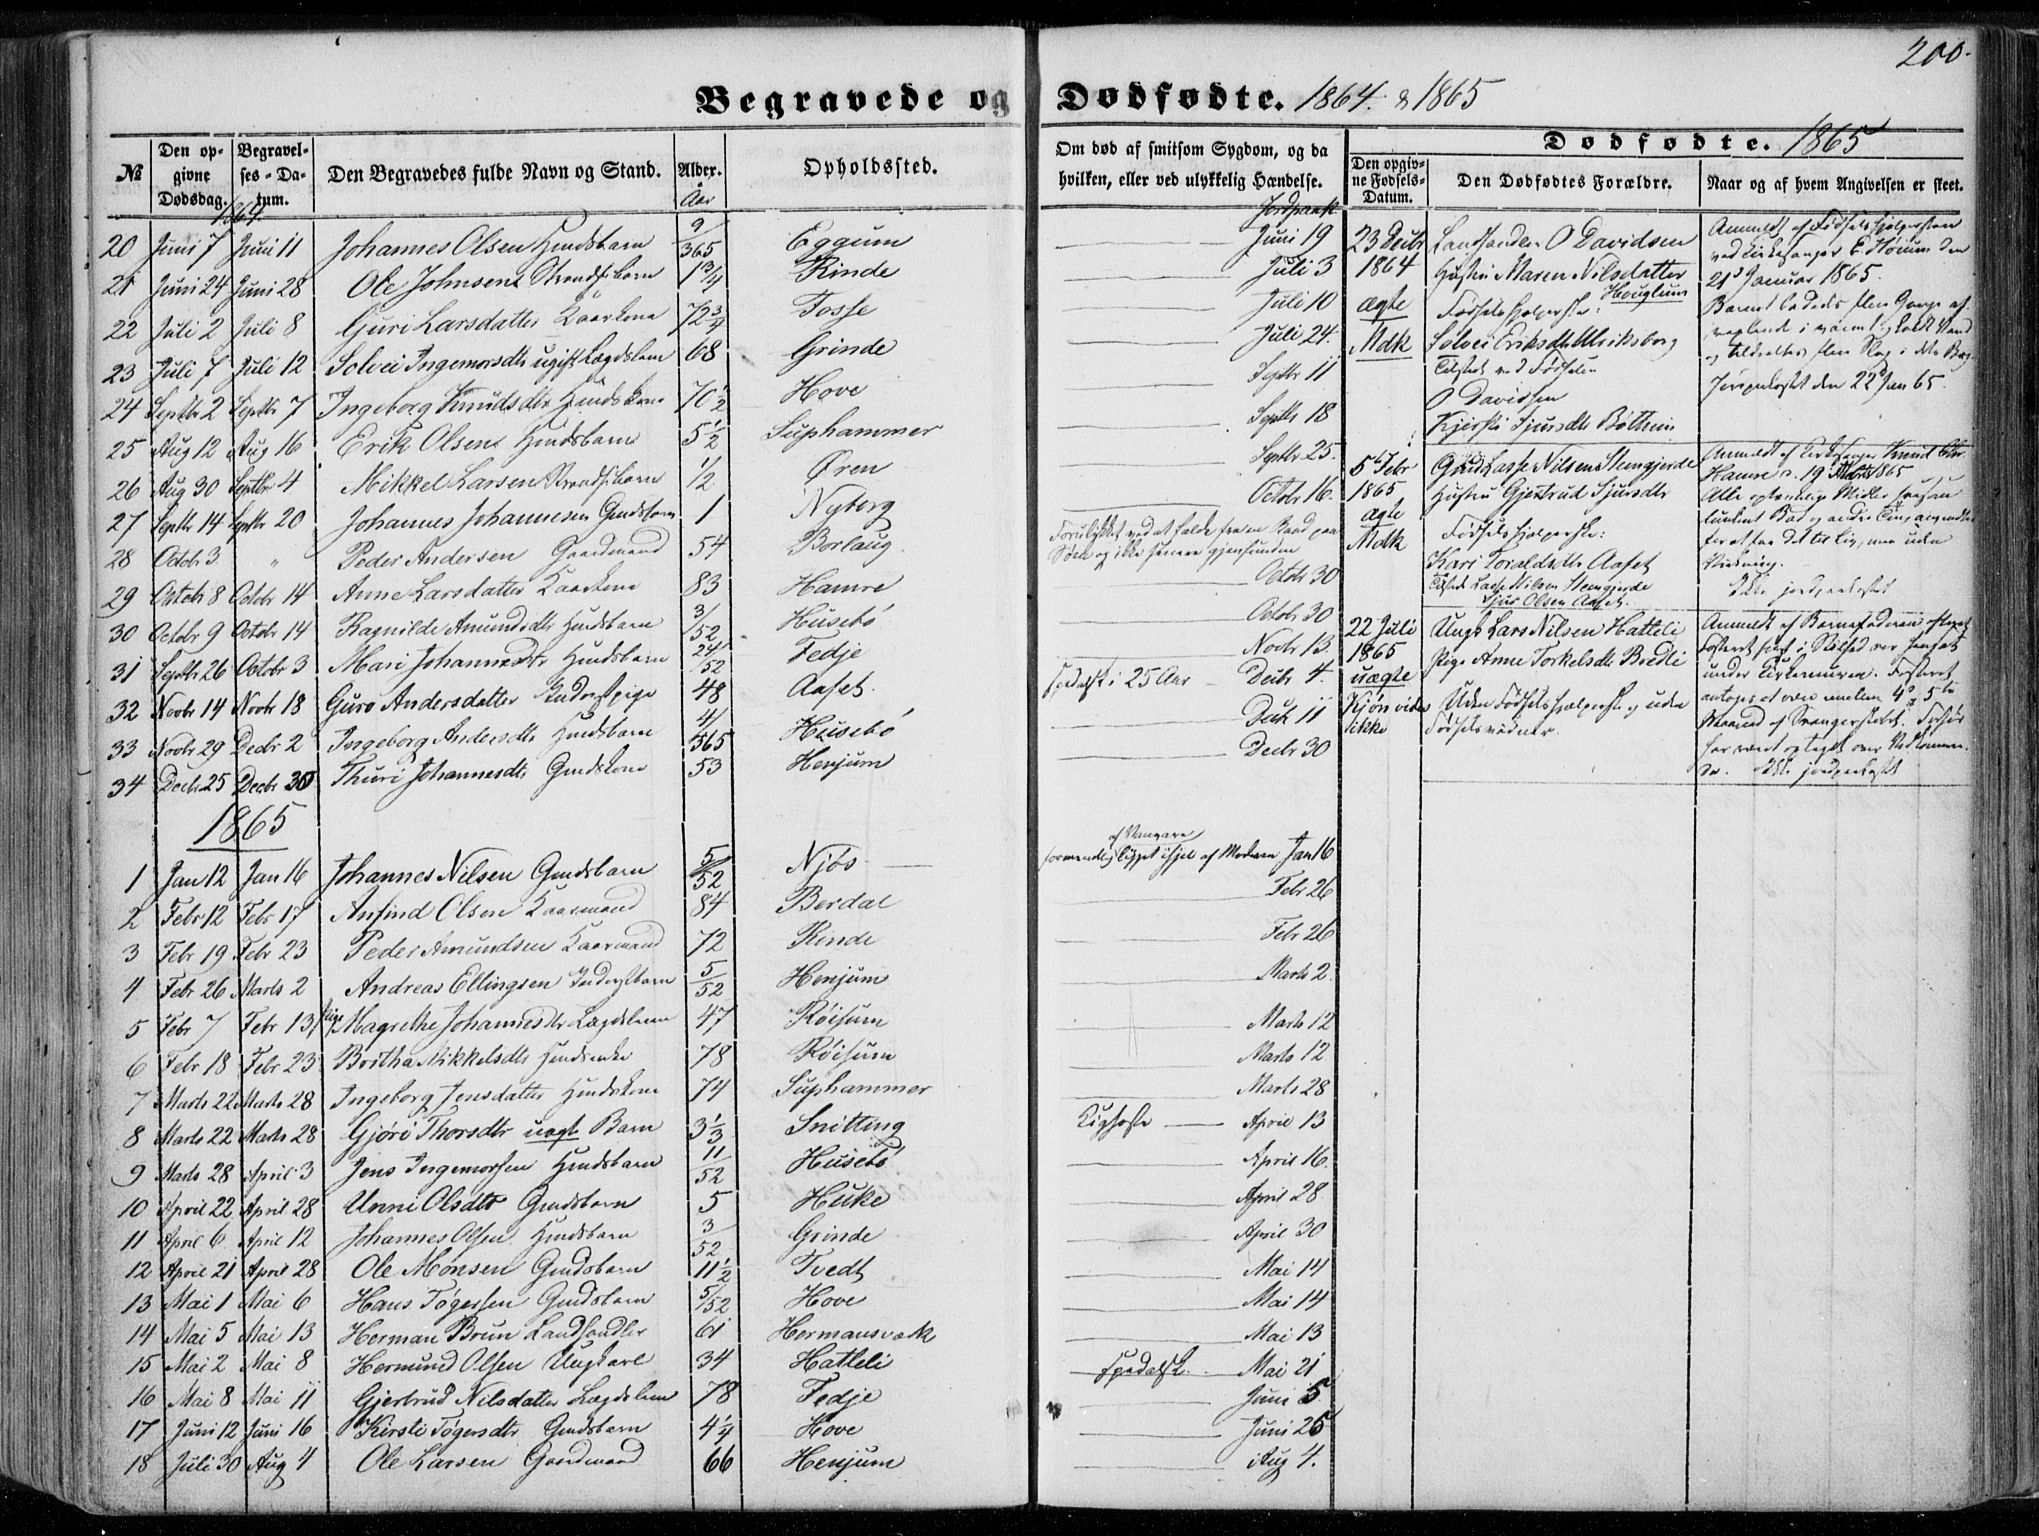 200.
Begravede og Dødfødte. 1864 & 1865
№ Den opgivne Dødsdag. Begravelses-Datum. Den Begravedes fulde Navn og Stand. Alder. Opholdssted. Om død af smitsom Sygdom, og da hvilken, eller ved ulykkelig Hændelse.
1864. Aar Jordpaak
20 Juni 7 Juni 11 Johannes Olsen Huusbarn 9/365 Eggum Juni 19
21 Juni 24 Juni 28 Ole Johnsen Strandsbarn 1 3/4 Rinde Juli 3
22 Juli 2 Juli 8 Guri Larsdatter Kaarkone 72 3/4 Fosse Juli 10
23 Juli 7 Juli 12 Solvei Ingemorsdtr ugift Lægdslem 68 Grinde Juli 24.
24 Septbr 2 Septbr 7 Ingeborg Knudsdtr Huuskone 70 1/2 Hove Septbr 11
25 Aug 12 Aug 16 Erik Olsen Huusbarn 5 1/2 Suphammer Septbr 18
26 Aug 30 Septbr 4 Mikkel Larsen Strandsbarn 1/2 Øren Septbr 25.
27 Septbr 14 Septbr 20 Johannes Johannesen Gmdsbarn 1 Nyborg Octobr 16.
28 Octobr 3 " Peder Andersen Gaardmand 54 Borlaug Forulykket ved at falde fra en Baad paa Søen og ikke senere gjenfunden
29 Octobr 8 Octobr 14 Anne Larsdatter Kaarkone 83 Hamre Octobr 30
30 Octobr 9 Octobr 14 Ragnilde Amundsdtr Huusbarn 3/52 Husebø Octobr 30
31 Septbr 26 Octobr 3 Mari Johannesdtr Huusbarn 24/52 Fedje Novbr 13.
32 Novbr 14 Novbr 18 Guro Andersdatter Inderstpige 48 Aaset. Spedalsk i 25 Aar Decbr 4.
33 Novbr 29 Decbr 2 Ingeborg Andersdtr Huusbarn 4/365 Husebø Decbr 11
34 Decbr 25 Decbr 30 Thuri Johannesdtr Gmdskone 53 Henjum Decbr 30
1865
1 Jan 12 Jan 16 Johannes Nilsen Gmdsbarn 5/52 Njøs formendlig af Vanvare ligget ihjel af Moderen Jan 16
2 Febr 12 Febr 17 Anfind Olsen Kaarmand 84 Berdal Febr 26
3 Febr 19 Febr 23 Peder Amundsen Kaarmand 72 Rinde Febr 26
4 Febr 26 Marts 2 Andreas Ellingsen Inderstbarn 5/52 Henjum Marts 2.
5 Febr 7 Febr 13 Pige Magrethe Johannesdtr Lægdslem 47 Røisum Marts 12
6 Febr 18 Febr 23 Britha Mikkelsdtr Huusenke 78 Røisum Marts 12
7 Marts 22 Marts 28 Ingeborg Jensdatter Huuskone 74 Suphammer Marts 28
8 Marts 22 Marts 28 Gjøri Thorsdtr uægte Barn 3 1/3 Snitting Kighoste April 13
9 Marts 28 April 3 Jens Ingemorsen Huusbarn 11/52 Husebø April 16.
10 April 22 April 28 Unni Olsdtr Gmdsbarn 5 Huke April 28
11 April 6 April 12 Johannes Olsen Huusbarn 3/52 Grinde April 30
12 April 21 April 28 Ole Monsen Gmdsbarn 11 1/2 Tvedt Mai 14
13 Mai 1 Mai 6 Hans Tøgersen Gmdsbarn 5/52 Hove Mai 14
14 Mai 5 Mai 13 Herman Brun Landhandler 61 Hermansværk Mai 13
15 Mai 2 Mai 8 Hermund Olsen Ungkarl 34 Hatleli Spedalsk. Mai 21
16 Mai 8 Mai 11 Gjertrud Nilsdatter Lægdslem 78 Fedje Juni 5
17 Juni 12 Juni 16 Kirsti Tøgersdtr Gmdsbarn 4 1/4 Hove Juni 25
18 Juli 30 Aug 4 Ole Larsen Gaardmand 66 Henjum Aug 4.
Dødfødte. 1865
Den opgivne Fødsels-Datum. Den Dødfødtes Forældre. Naar og af hvem Angivelsen er skeet.
23 Decbr 1864 ægte Mdk
Landhandler O Davidsen
Hustru Maren Nilsdatter Houglum
Fødselshjelperske:
Solvei Eriksdtr Ulriksborg
Tilstede ved Fødselen
O Davidsen
Kjersti Sjursdtr Bøthun
Anmeldt af Fødselshjelpersken
ved Kirkesanger E Hørium den
21 Januar 1865.
Jordpaakastet den 22 Jan 65.
5 Febr 1865 ægte Mdk
Gmd Lasse Nilsen Stengjerde
Hustru Gjertrud Sjursdtr
Fødselshjelperske:
Kari Toraldsdtr Aaset
Tilstede Lasse Nilsen Stengjerde
Sjur Olsen Aaset.
Anmeldt af Kirkesanger Knud Chr.
Hamre d. 19 Marts 1865
for at faa det til Liv, men uden
Virkning.
Ikke jordpaakastet
22 Juli 1865 uægte Kjøn vides ikke
Ungk Lars Nilsen Hatleli
Pige Anne Torkelsdtr Bredli
Uden Fødselshjelperske og uden
Fødselsvidner.
Anmeldt af Barnefaderen
under Kirkemuren. Fosteret
antoges at være mellem 4 & 5te
Maaned af Svangerskabet. Forhør
har været optaget over Vedkommende.
Ikke jordpaakastet